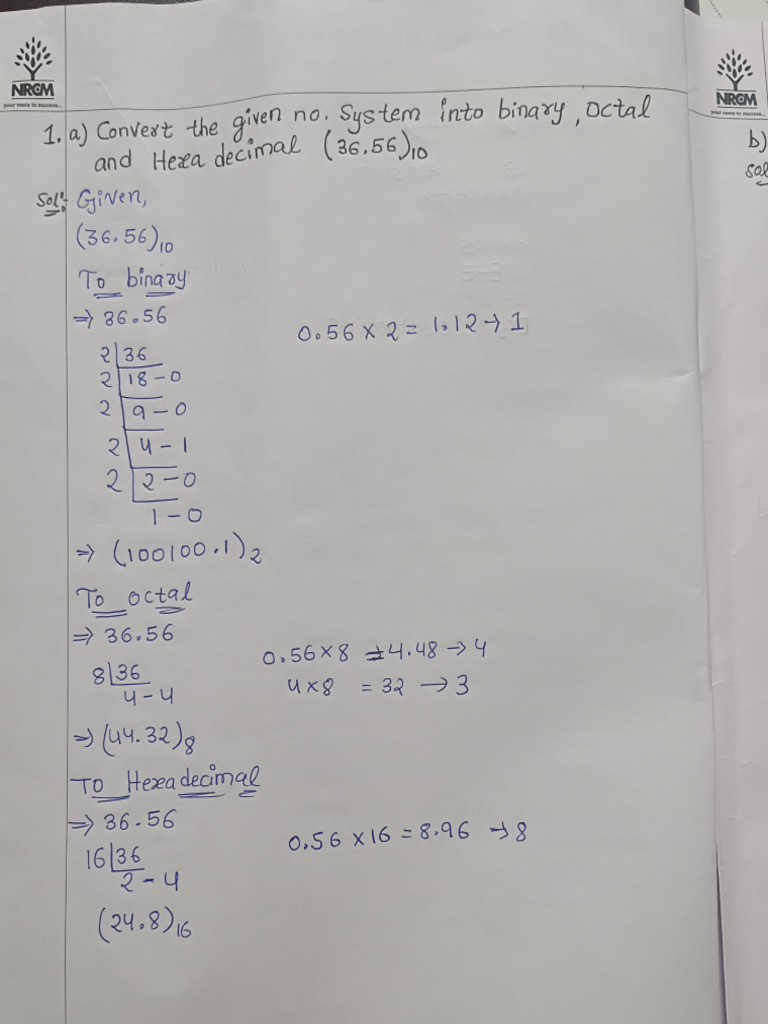 NRCM
your roots to success...
NRCM
your roots to success...
1. a) Convert the given no. System into binary, octal
and Hexa decimal (36.56)10
b)
Sol:- Given,
sol
(36.56)10
To binary
⇒ 36.56
0.56 × 2 = 1.12 → 1
2 | 36
2 | 18 - 0
2 | 9 - 0
2 | 4 - 1
2 | 2 - 0
1 - 0
⇒ (100100.1)2
To octal
⇒ 36.56
0.56 × 8 = 4.48 → 4
8 | 36
4 × 8 = 32 → 3
4 - 4
⇒ (44.32)8
To Hexadecimal
⇒ 36.56
0.56 × 16 = 8.96 → 8
16 | 36
2 - 4
(24.8)16